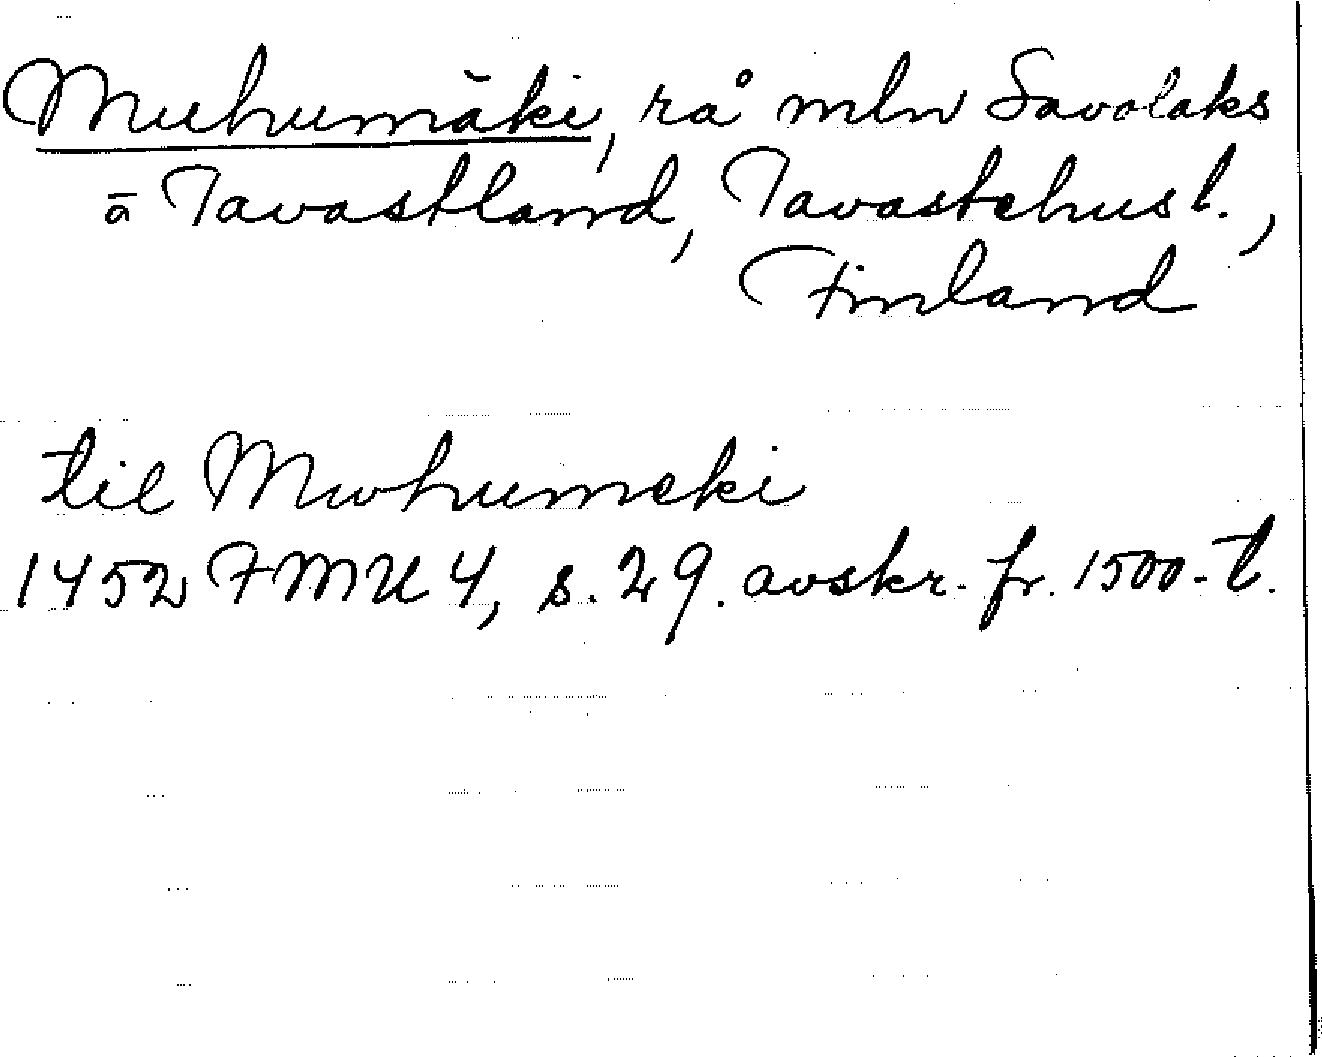 Muhumäki, rå mln Savolaks
o Tavastland, Tavastehus l.,
Finland
til Mwhumeki
1452 FMU 4, s. 29. avskr. fr. 1500-t.